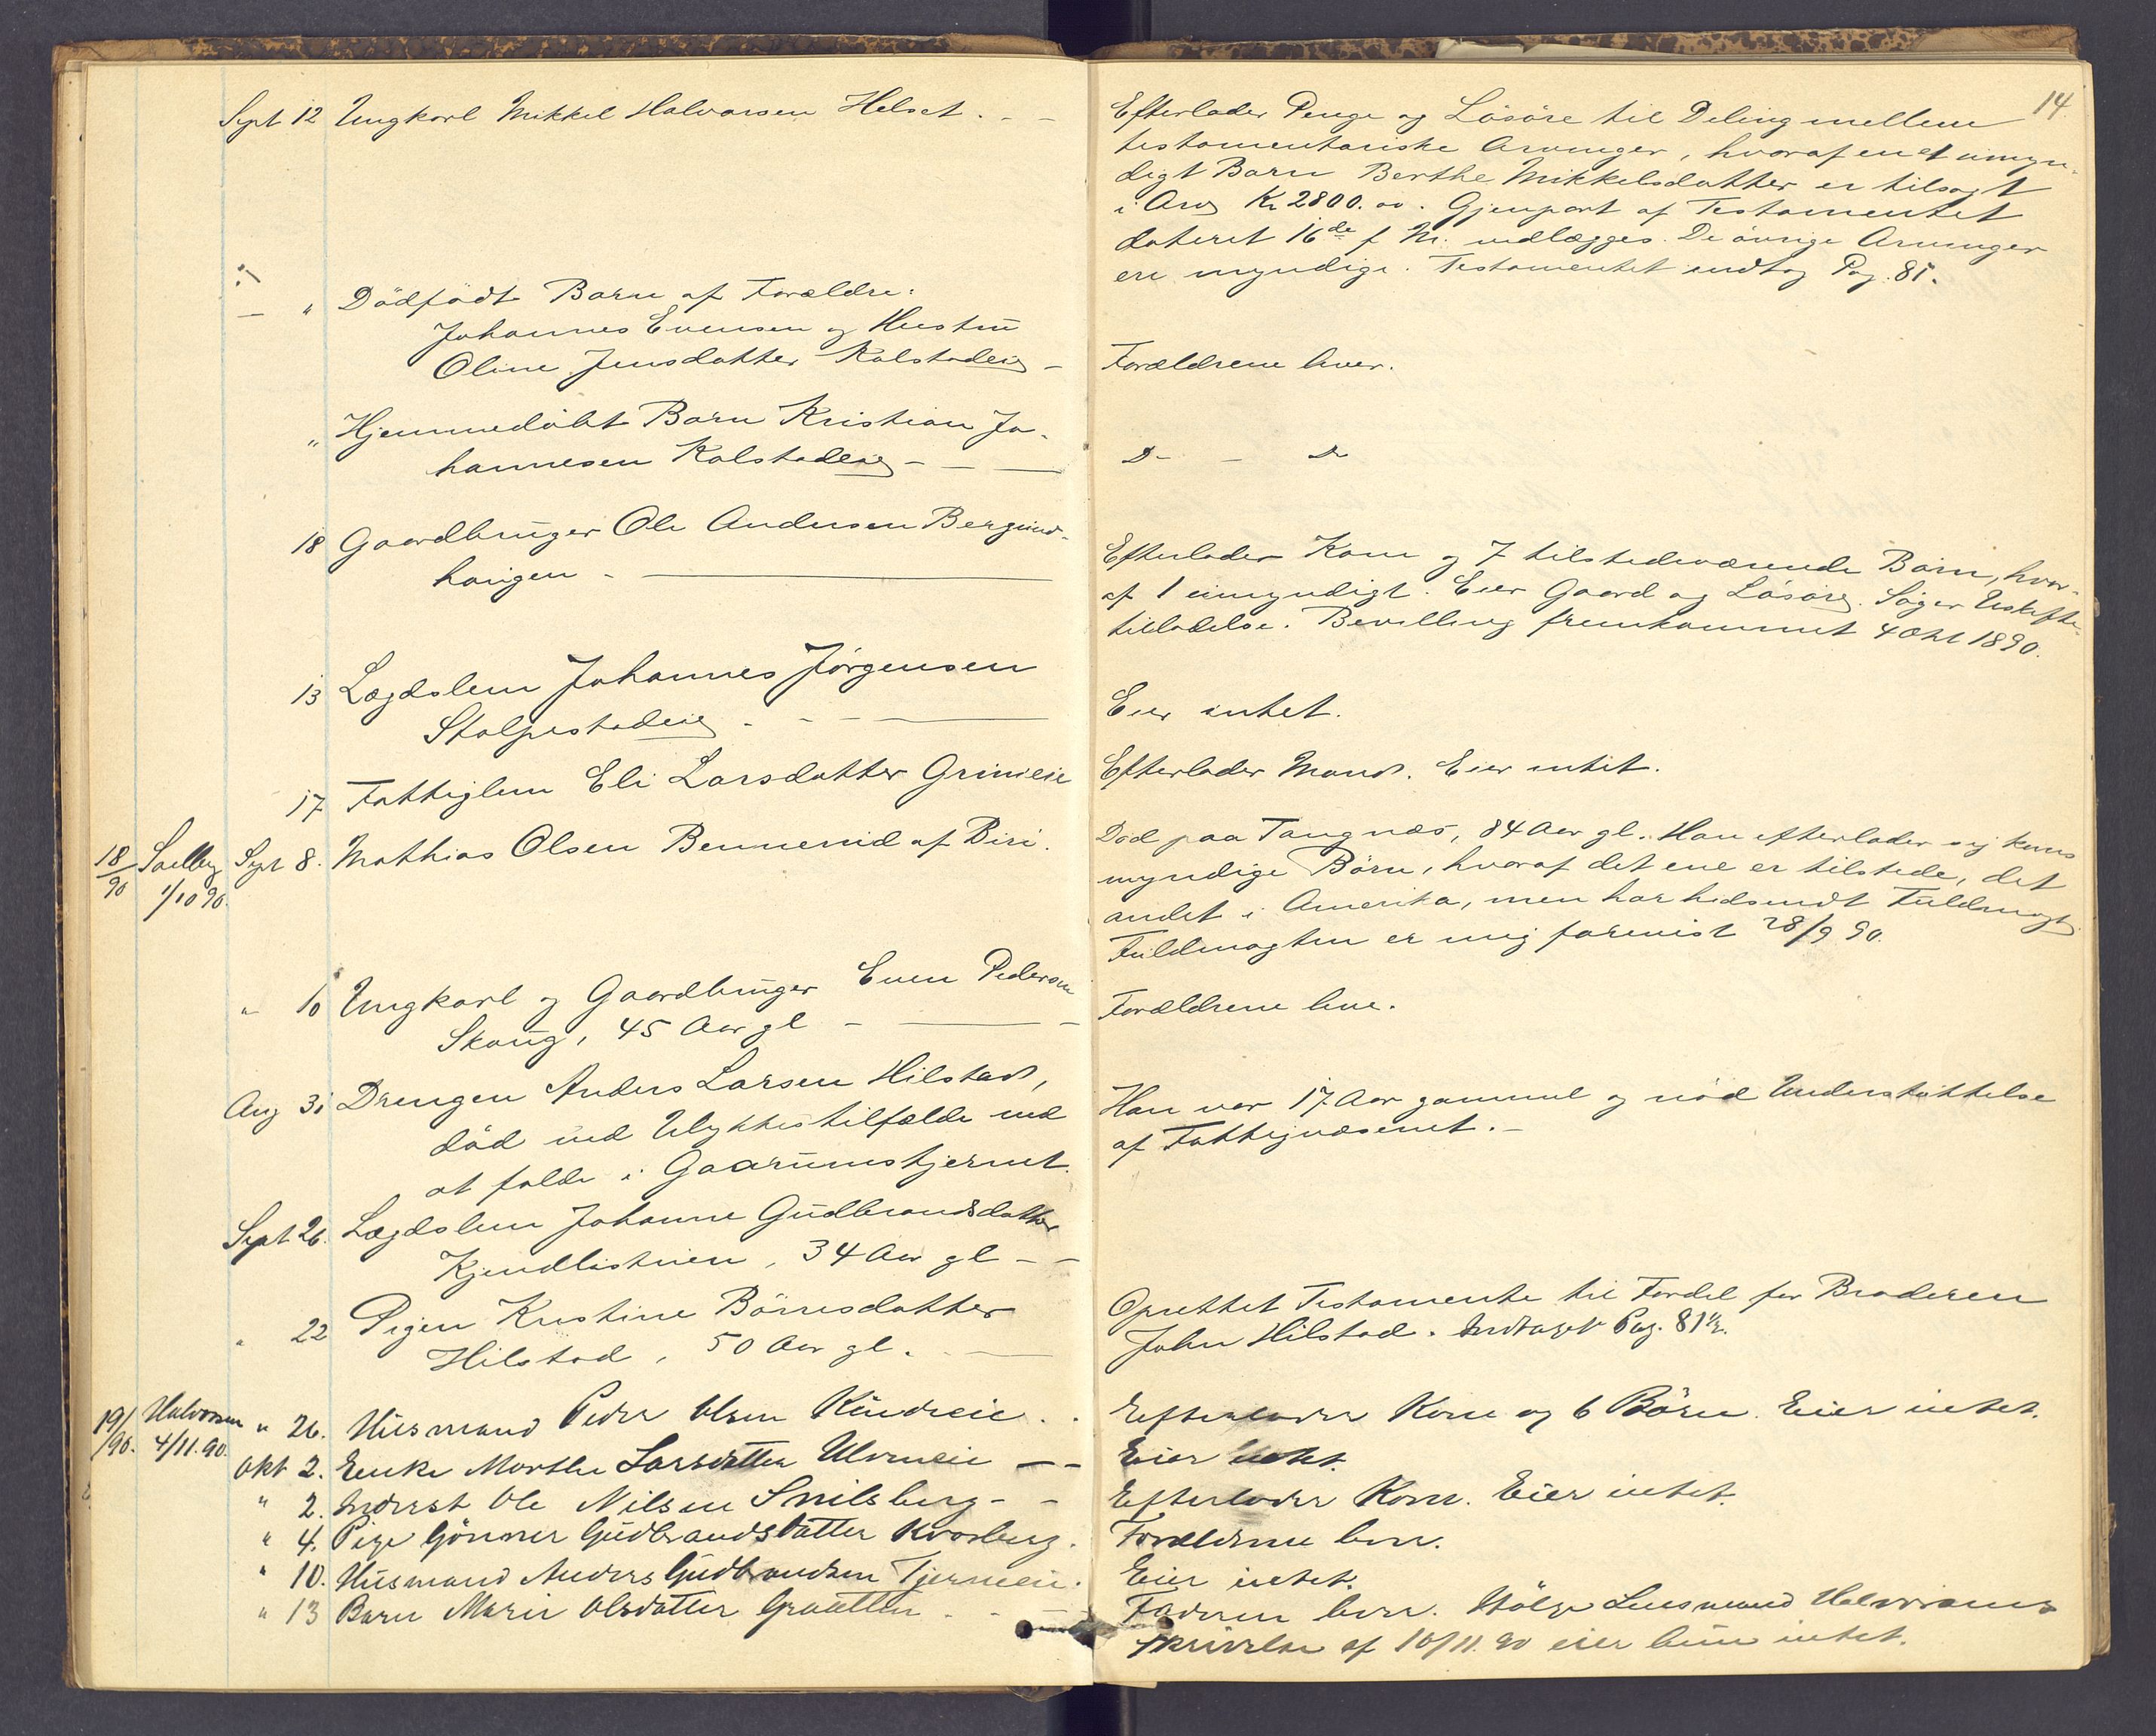 14.
Sept 12 Ungkarl Mikkel Halvorsen Helset. - -
Efterlader Penge og Løsøre til Deling mellem
testamentariske Arvinger, hvoraf en et umyn-
digt Barn Berthe Mikkelsdatter er tilsagt
i Arv Kr 2800.00. Gjenpart af Testamentet
dateret 16de f. M. vedlægges. De øvrige Arvinger
ere myndige. Testamentet indtag Pag. 85.
— " Dödfödt Barn af Forældre:
Johannes Evensen og Hustru
Oline Jensdatter Kolstadeie -
Forældrene lever.
" Hjemmedöbt Barn Kristian Jo-
hannesen Kolstadeie - - —
D - D
18 Gaardbruger Ole Andersen Bergund-
haugen - —
Efterlader Kone og 7 tilstedeværende Börn, hvor-
af 1 umyndigt. Eier Gaard og Løsøre. Søger Uskifte-
tilladelse. Bevilling fremkommet 4 Okt 1890.
13 Lægdslem Johannes Jörgensen
Stalpestadeie - - - —
Eier intet.
17 Fattiglem Eli Larsdatter Grimeie
Efterlader Mand. Eier intet.
18/90 Soelberg 1/10 90. Sept 8. Mathias Olsen Bennerud af Biri.
Död paa Tangnæs, 84 Aar gl. Han efterlader sig kuns
myndige Börn, hvoraf det ene er tilstede, det
andet i Amerika, men har hidsendt Fuldmagt
Fuldmagten er mig forevist 28/9 90.
" 10 Ungkarl og Gaardbruger Even Pedersen
Skaug, 45 Aar gl - — -
Forældrene leve.
Aug 31 Drengen Anders Larsen Hilstad,
död ved Ulykkestilfælde ved
at falde i Gaarumstjernet.
Han var 17 Aar gammel og nöd Understöttelse
af Fattigvæsenet. -
Sept 26. Lægdslem Johanne Gudbrandsdatter
Kjendlistuen, 34 Aar gl - -
" 22 Pigen Kristine Börresdatter
Hilstad, 50 Aar gl. —
Oprettet Testamente til Fordel for Broderen
John Hilstad. Indtaget Pag. 81½.
19/90. Halvorsen 4/11.90. " 26. Husmand Peder Olsen Rudseie. .
Efterlader Kone og 6 Börn. Eier intet.
Okt 2. Enke Marthe Larsdatter Ulvneie - -
Eier intet.
" 2. Inderst Ole Nilsen Snilsberg - -
Efterlader Kone. Eier intet.
" 4. Pige Gönner Gudbrandsdatter Kvarberg.
Forældrene leve.
" 10. Husmand Anders Gudbrandsen Tjerneeie.
Eier intet.
" 13 Barn Marie Olsdatter Graatten - -
Faderen lever. Ifölge Lensmand Halvorsens
skrivelse af 10/11.90 eier hun intet.